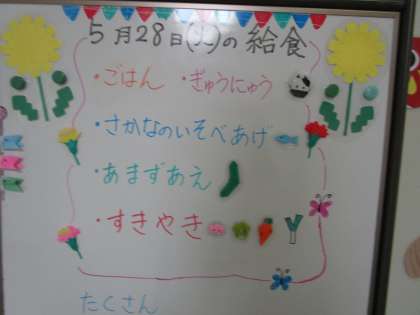 5月28日(火)の給食
・ごはん ・ぎゅうにゅう
・さかなのいそべあげ
・あまずあえ
・すきやき
たくさん